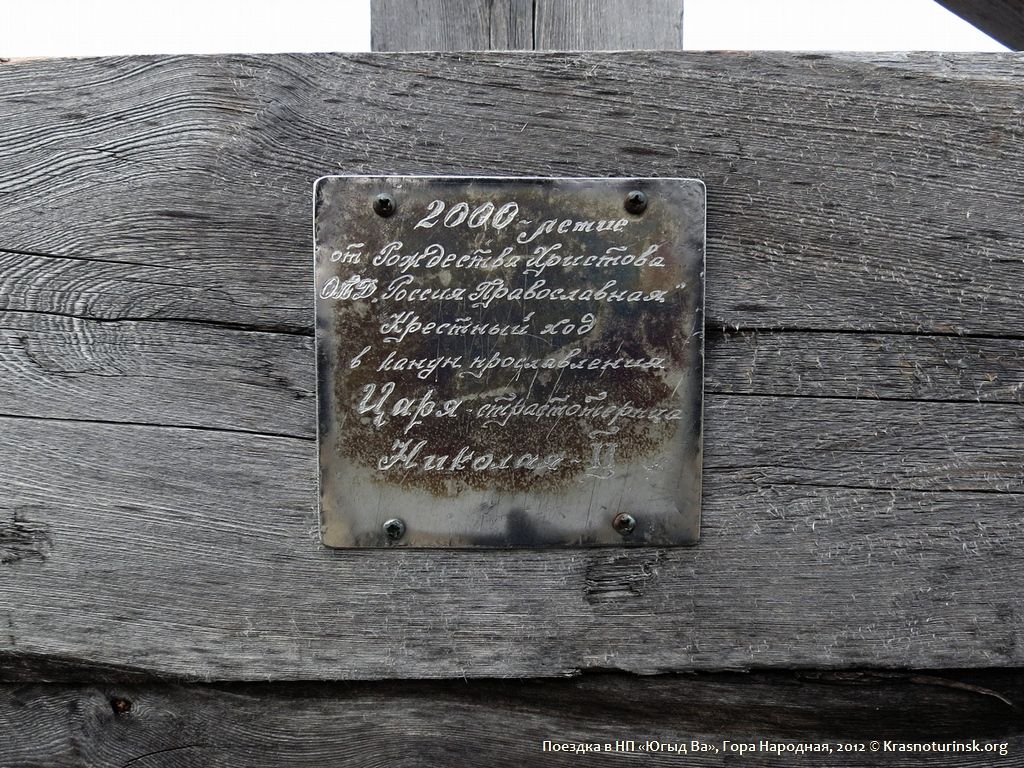 2000-летие
от Рождества Христова
ОПД "Россия Православная"
Крестный ход
в канун прославления
Царя-страстотерпца
Николая-II
Поездка в НП «Югыд Ва», Гора Народная, 2012 © Krasnoturinsk.org